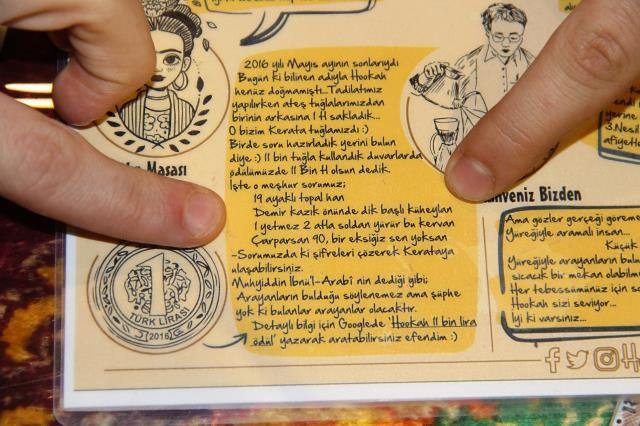 2016 yılı Mayıs ayının sonlarıydı
Bugün ki bilinen adıyla Hookah
henüz doğmamıştı...Tadilatımız
yapılırken ateş tuğlalarımızdan
birinin arkasına 1 H sakladık...
O bizim Kerata tuğlamızdı :)
Birde soru hazırladık yerini bulun
diye :) 11 bin tuğla kullandık duvarlarda
ödülümüzde 11 Bin H olsun dedik.
İşte o meşhur sorumuz;
19 ayaklı topal han
Demir kazık önünde dik başlı küheylan
1 yetmez 2 atla soldan yürür bu kervan
Çarparsan 90, bir eksiğiz sen yoksan
-Sorumuzda ki şifreleri çözerek Kerataya
ulaşabilirsiniz.
Muhyiddin İbnu'l-Arabi nin dediği gibi;
Arayanların bulduğu söylenemez ama şüphe
yok ki bulanlar arayanlar olacaktır.
Detaylı bilgi için Googlede 'Hookah 11 bin lira
ödül' yazarak aratabilirsiniz efendim :)
Masası
1
TÜRK LİRASI
2016
yerine
3.Nesil
afiyetle
Bizden
Ama gözler gerçeği
Yüreğiyle aramalı insan...
Küçük
Yüreğiyle arayanların
sıcacık bir mekan
Her tebessümünüz için
Hookah sizi seviyor...
İyi ki varsınız...